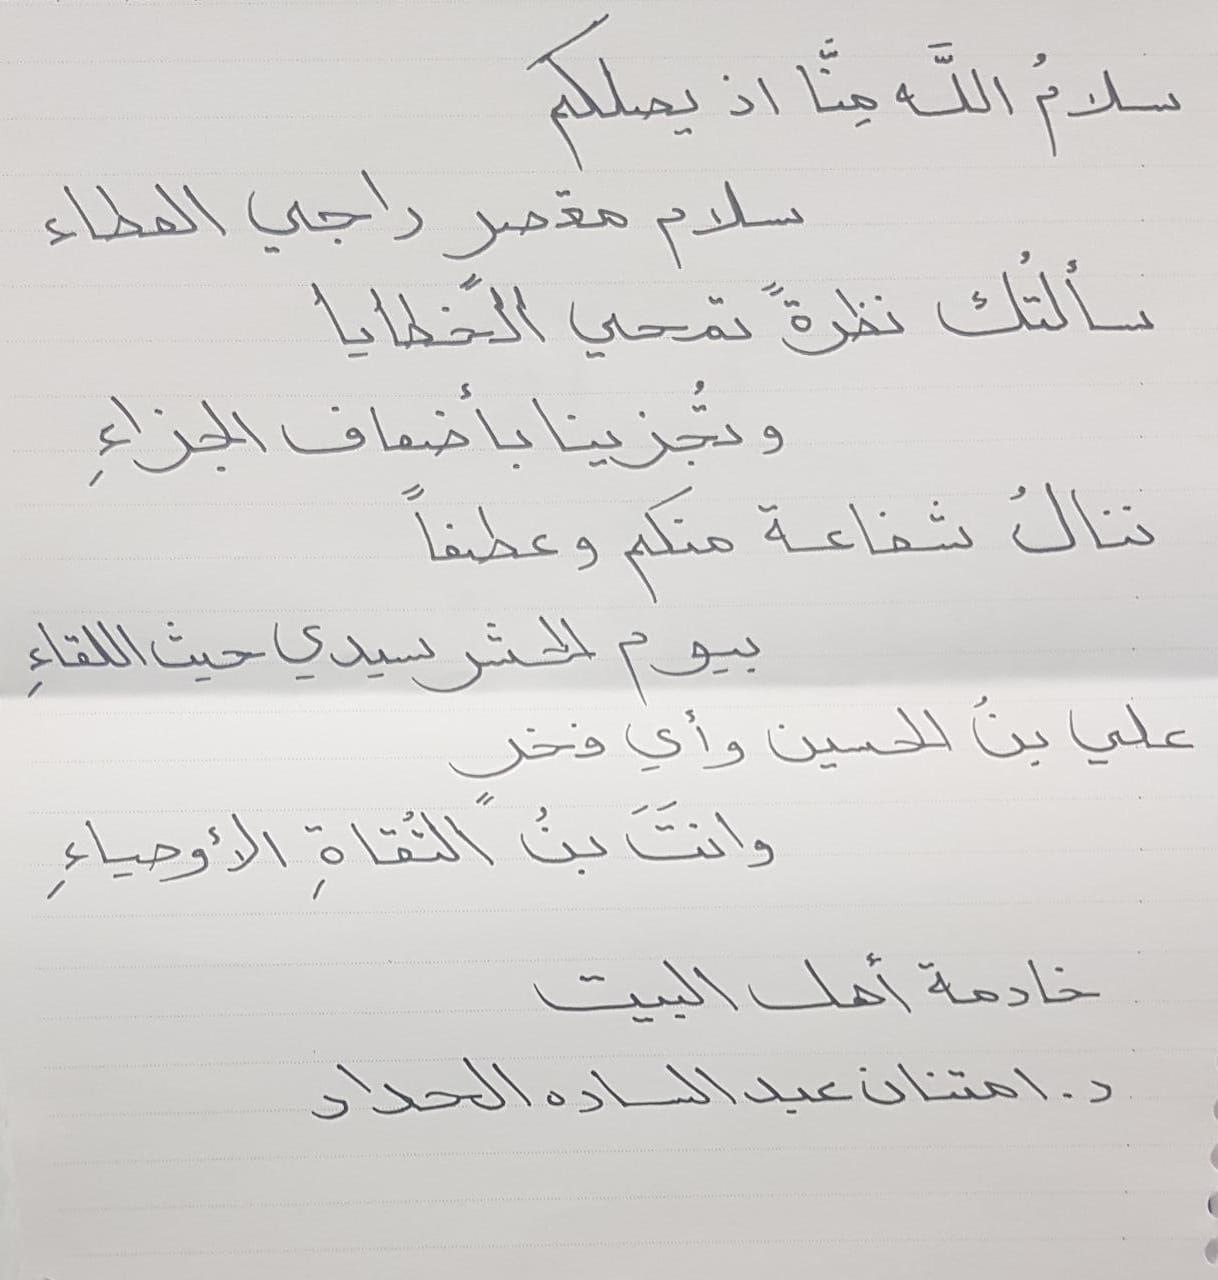 سلامُ اللَّه مِنَّا اذ يصلكم
سلام مقصر راجي العطاء
سألتُك نظرةً تمحي الخطايا
وتُجزينا بأضعاف الجزاءِ
ننالُ شفاعة منكم وعطفاً
بيوم الحشر سيدي حيث اللقاءِ
علي بنُ الحسين وأي فخر
وانتَ بنُ التُقاةِ الأوصياءِ
خادمة أهل البيت
د. امتنان عبد الساده الحداد